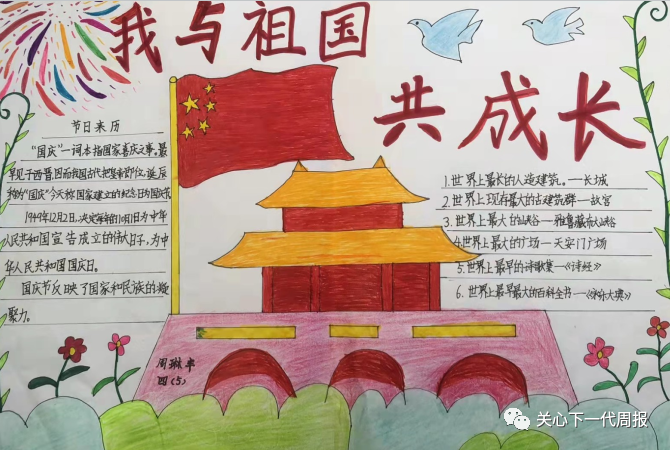 我与祖国
共成长
节日来历
"国庆"一词本指国家喜庆之事。最
早见于西晋。因而我国古代把皇帝即位、诞辰
称为"国庆"今天称国家建立的纪念日为国庆节
1949年12月2日,决定每年的10月1日为中华
人民共和国宣告成立的伟大日子,为中
华人民共和国国庆日。
国庆节反映了国家和民族的凝
聚力。
1.世界上最长的人造建筑。——长城
2.世界上现存最大的古建筑群——故宫
3.世界上最大的峡谷——雅鲁藏布大峡谷
4.世界上最大的广场——天安门广场
5.世界上最早的诗歌集——《诗经》
6.世界上最早最大的百科全书——《永乐大典》
周琳
四(5)
关心下一代周报